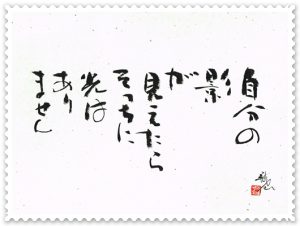 自分の
影
が
見えたら
そっちに
光は
あり
ません